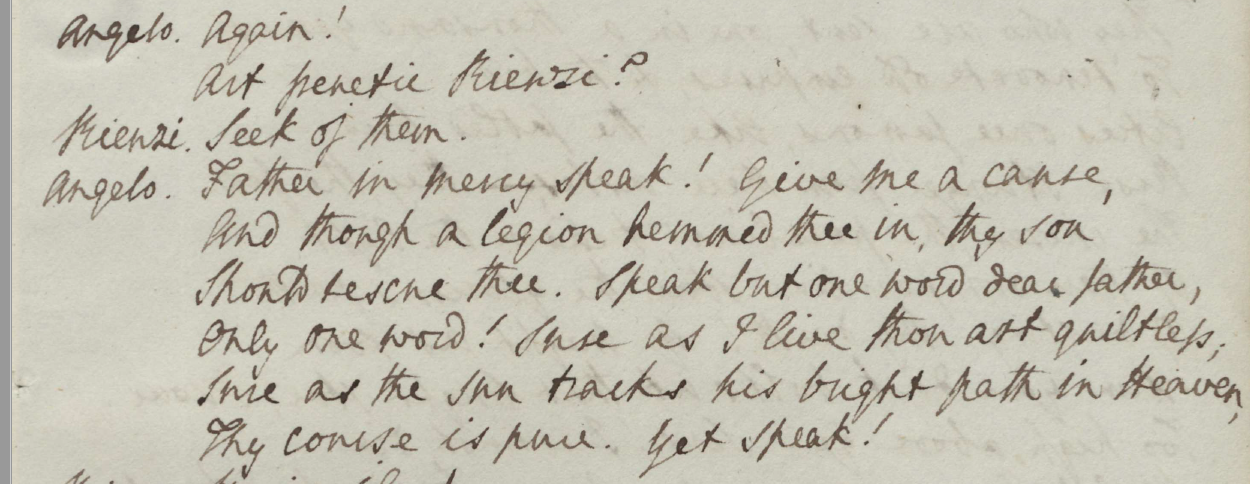 Angelo. Again!
Art frenetic Rienzi?
Rienzi. Seek of them.
Angelo. Father in mercy speak! Give me a cause,
And though a legion hemmed thee in, thy son
Should rescue thee. Speak but one word dear father,
Only one word! Sure as I live thou art guiltless;
Sure as the sun tracks his bright path in Heaven,
Thy course is pure. Yet speak!